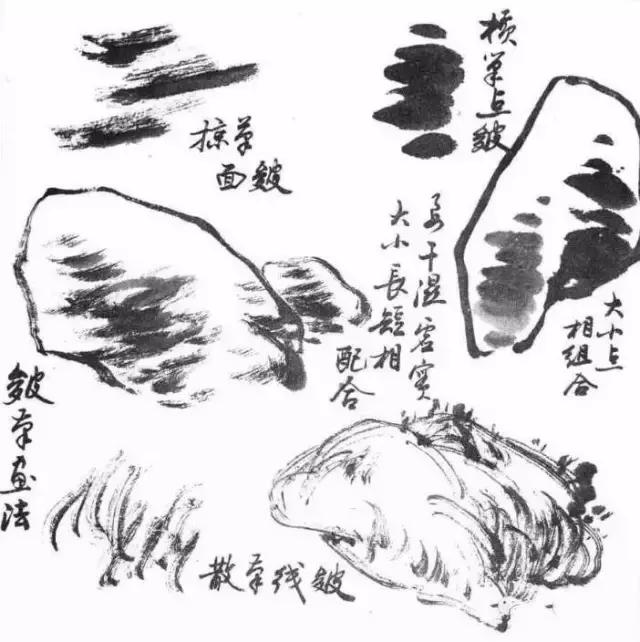 掠笔
面皴
横笔点皴
要干湿虚实
大小長短相
配合
大小点
相组合
皴笔画法
散笔线皴